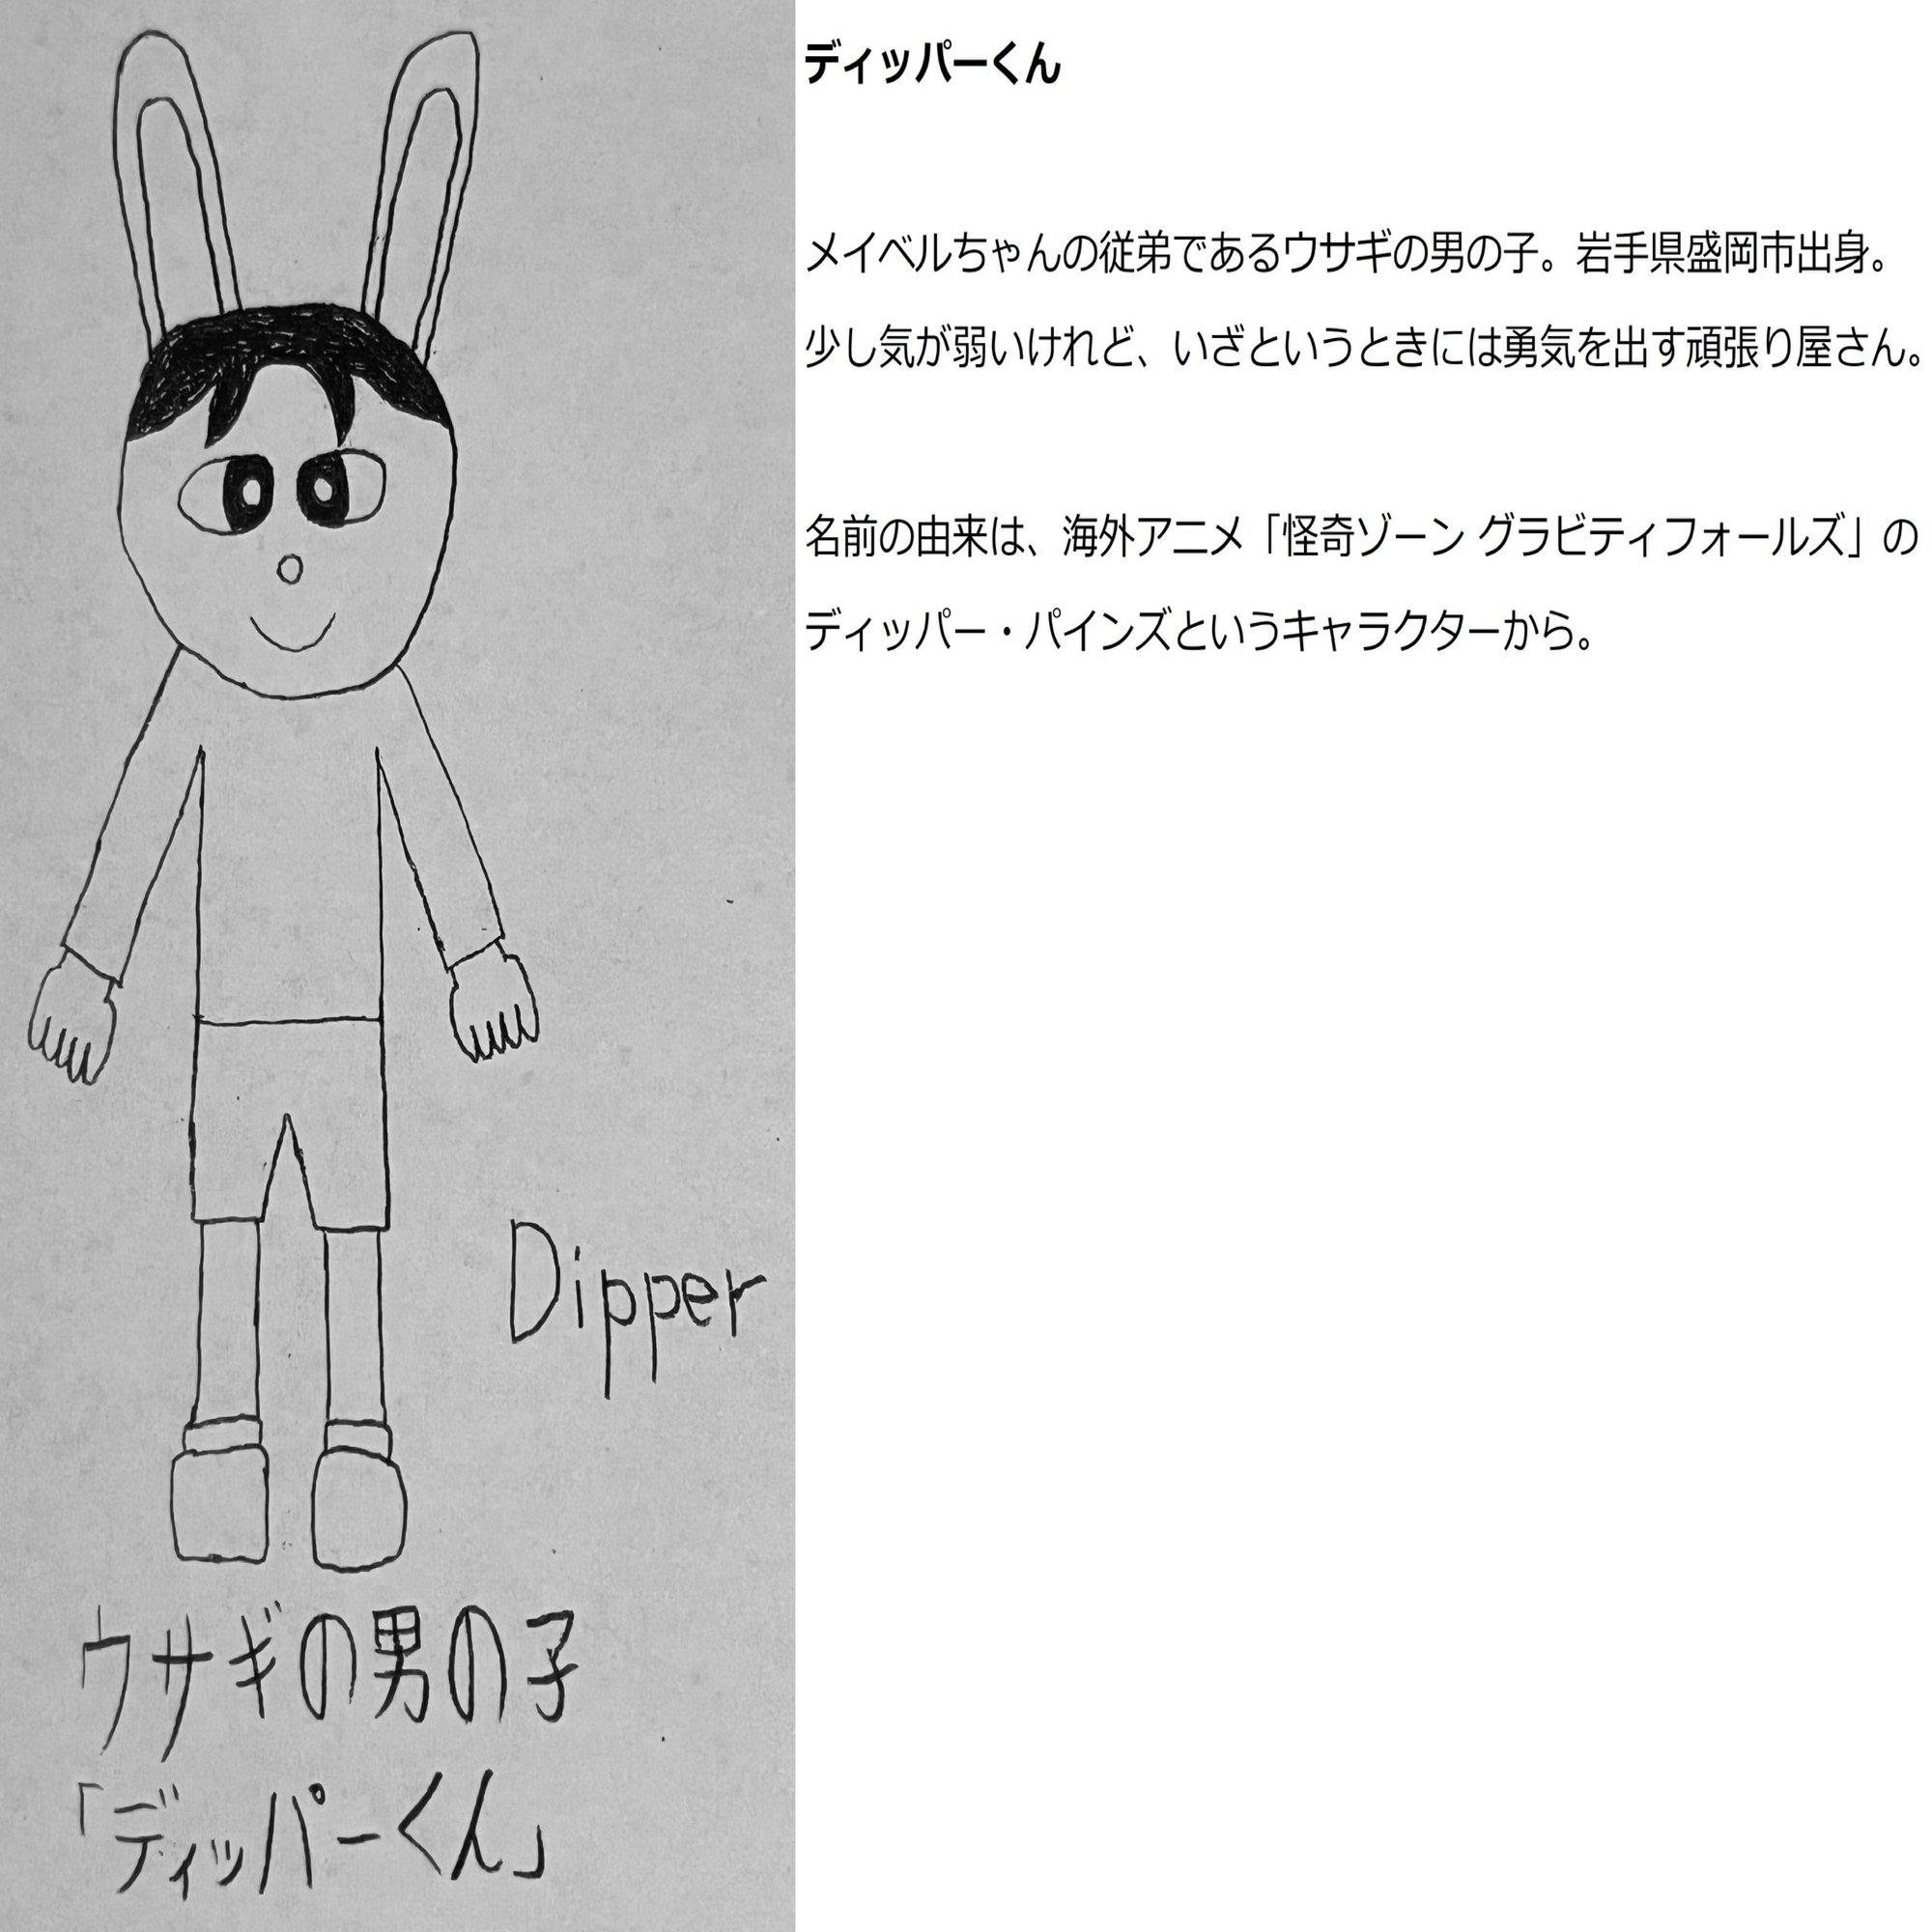 ディッパーくん
メイベルちゃんの従弟であるウサギの男の子。岩手県盛岡市出身。
少し気が弱いけれど、いざというときには勇気を出す頑張り屋さん。
名前の由来は、海外アニメ「怪奇ゾーン グラビティフォールズ」の
ディッパー・パインズというキャラクターから。
Dipper
ウサギの男の子
「ディッパーくん」